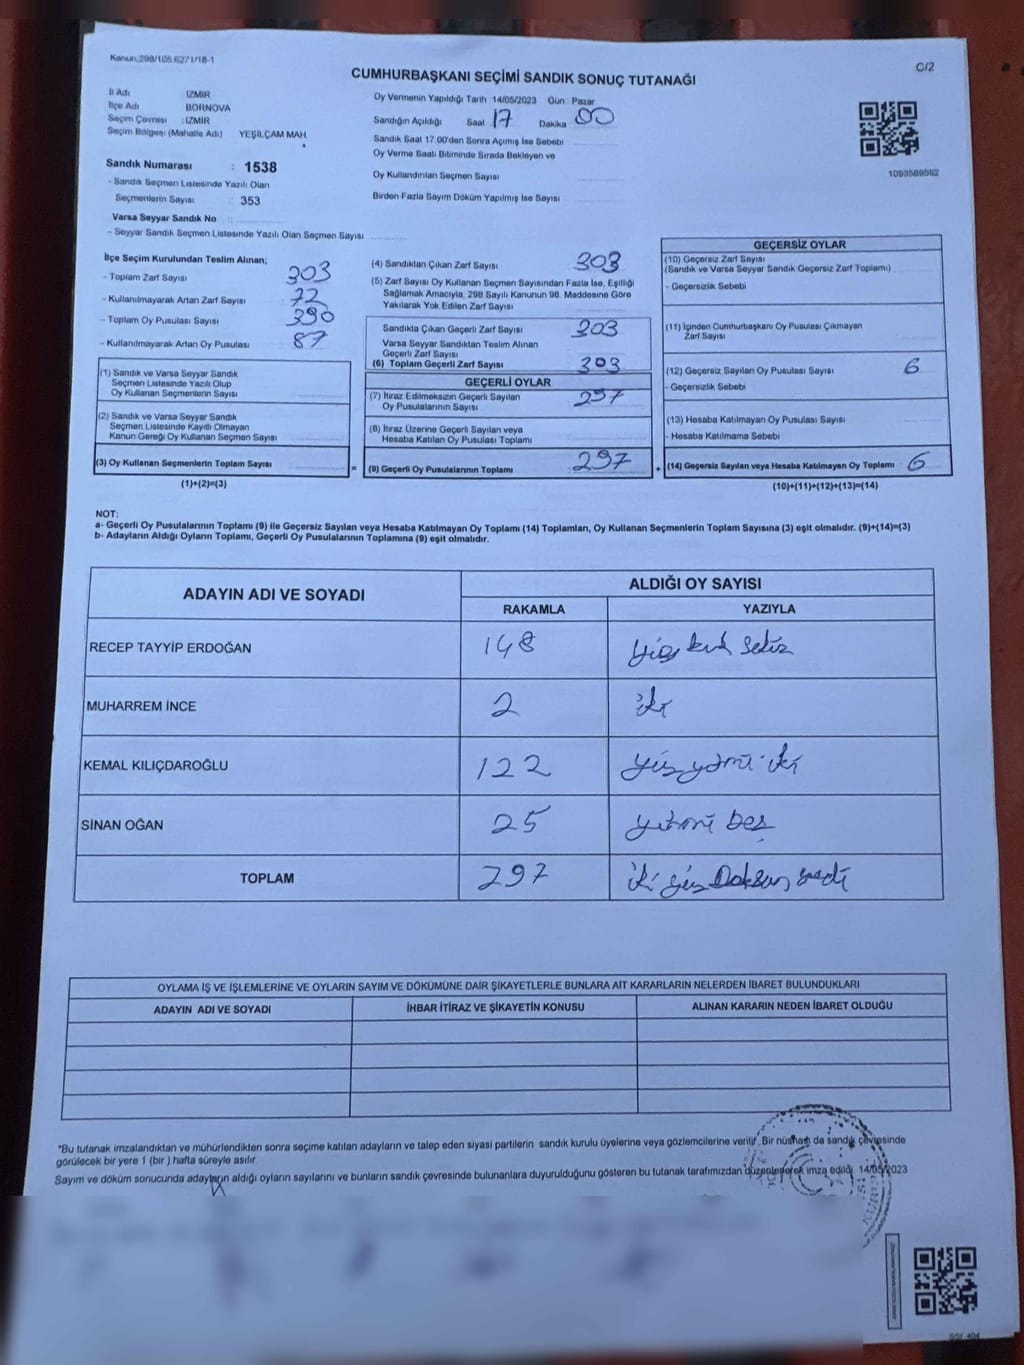 Kanun,298/105,6271/18-1
C/2
CUMHURBAŞKANI SEÇİMİ SANDIK SONUÇ TUTANAĞI
İl Adı İZMİR
İlçe Adı BORNOVA
Seçim Çevresi : İZMİR
Seçim Bölgesi (Mahalle Adı) YEŞİLÇAM MAH
Sandık Numarası : 1538
- Sandık Seçmen Listesinde Yazılı Olan
Seçmenlerin Sayısı : 353
Varsa Seyyar Sandık No :
- Seyyar Sandık Seçmen Listesinde Yazılı Olan Seçmen Sayısı
Oy Vermenin Yapıldığı Tarih 14/05/2023 Gün : Pazar
Sandığın Açıldığı Saat 17 Dakika 00
Sandık Saat 17.00'den Sonra Açılmış İse Sebebi
Oy Verme Saati Bitiminde Sırada Bekleyen ve
Oy Kullandırılan Seçmen Sayısı
Birden Fazla Sayım Döküm Yapılmış İse Sayısı
1093589562
İlçe Seçim Kurulundan Teslim Alınan;
- Toplam Zarf Sayısı 303
- Kullanılmayarak Artan Zarf Sayısı 72
- Toplam Oy Pusulası Sayısı 390
- Kullanılmayarak Artan Oy Pusulası 87
(1) Sandık ve Varsa Seyyar Sandık
Seçmen Listesinde Yazılı Olup
Oy Kullanan Seçmenlerin Sayısı
(2) Sandık ve Varsa Seyyar Sandık
Seçmen Listesinde Kayıtlı Olmayan
Kanun Gereği Oy Kullanan Seçmen Sayısı
(3) Oy Kullanan Seçmenlerin Toplam Sayısı
(1)+(2)=(3)
(4) Sandıktan Çıkan Zarf Sayısı 303
(5) Zarf Sayısı Oy Kullanan Seçmen Sayısından Fazla İse, Eşitliği
Sağlamak Amacıyla, 298 Sayılı Kanunun 98. Maddesine Göre
Yakılarak Yok Edilen Zarf Sayısı
Sandıkta Çıkan Geçerli Zarf Sayısı 303
Varsa Seyyar Sandıktan Teslim Alınan
Geçerli Zarf Sayısı
(6) Toplam Geçerli Zarf Sayısı 303
GEÇERLİ OYLAR
(7) İtiraz Edilmeksizin Geçerli Sayılan
Oy Pusulalarının Sayısı 297
(8) İtiraz Üzerine Geçerli Sayılan veya
Hesaba Katılan Oy Pusulası Toplamı
= (9) Geçerli Oy Pusulalarının Toplamı 297 +
GEÇERSİZ OYLAR
(10) Geçersiz Zarf Sayısı
(Sandık ve Varsa Seyyar Sandık Geçersiz Zarf Toplamı)
- Geçersizlik Sebebi
(11) İçinden Cumhurbaşkanı Oy Pusulası Çıkmayan
Zarf Sayısı
(12) Geçersiz Sayılan Oy Pusulası Sayısı 6
- Geçersizlik Sebebi
(13) Hesaba Katılmayan Oy Pusulası Sayısı
- Hesaba Katılmama Sebebi
(14) Geçersiz Sayılan veya Hesaba Katılmayan Oy Toplamı 6
(10)+(11)+(12)+(13)=(14)
NOT:
a- Geçerli Oy Pusulalarının Toplamı (9) ile Geçersiz Sayılan veya Hesaba Katılmayan Oy Toplamı (14) Toplamları, Oy Kullanan Seçmenlerin Toplam Sayısına (3) eşit olmalıdır. (9)+(14)=(3)
b- Adayların Aldığı Oyların Toplamı, Geçerli Oy Pusulalarının Toplamına (9) eşit olmalıdır.
ADAYIN ADI VE SOYADI
ALDIĞI OY SAYISI
RAKAMLA YAZIYLA
RECEP TAYYİP ERDOĞAN 148 yüz kırk sekiz
MUHARREM İNCE 2 iki
KEMAL KILIÇDAROĞLU 122 yüz yirmi iki
SİNAN OĞAN 25 yirmi beş
TOPLAM 297 iki yüz Doksan yedi
OYLAMA İŞ VE İŞLEMLERİNE VE OYLARIN SAYIM VE DÖKÜMÜNE DAİR ŞİKAYETLERLE BUNLARA AİT KARARLARIN NELERDEN İBARET BULUNDUKLARI
ADAYIN ADI VE SOYADI İHBAR İTİRAZ VE ŞİKAYETİN KONUSU ALINAN KARARIN NEDEN İBARET OLDUĞU
*Bu tutanak imzalandıktan ve mühürlendikten sonra seçime katılan adayların ve talep eden siyasi partilerin sandık kurulu üyelerine veya gözlemcilerine verilir. Bir nüshası da sandık çevresinde
görülecek bir yere 1 (bir) hafta süreyle asılır.
Sayım ve döküm sonucunda adayların aldığı oyların sayılarını ve bunların sandık çevresinde bulunanlara duyurulduğunu gösteren bu tutanak tarafımızdan düzenlenerek imza edildi. 14/05/2023